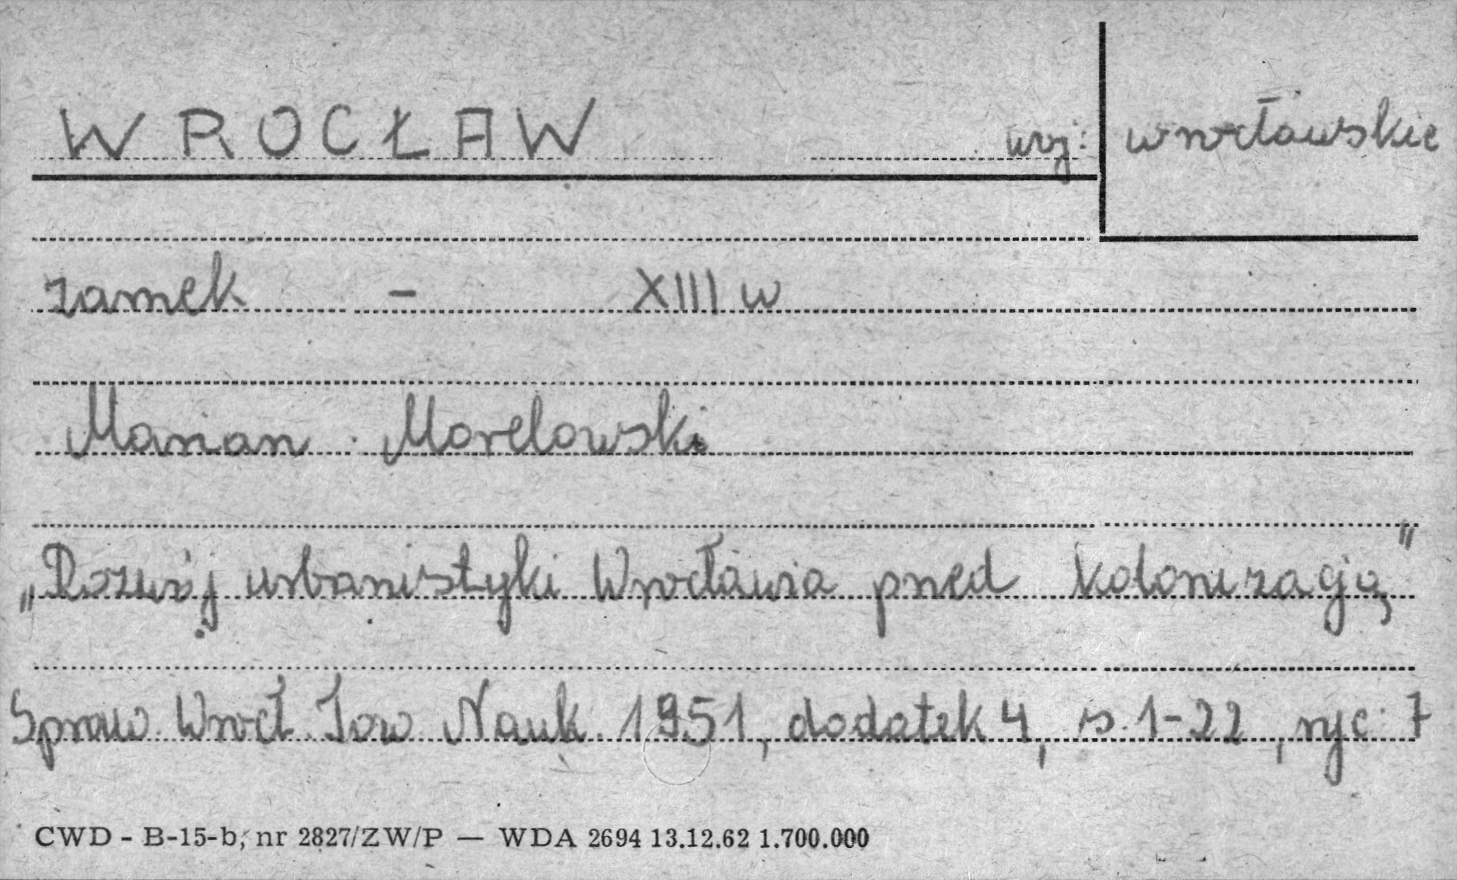 WROCŁAW woj: wrocławskie
zamek - XIII w
Marian Morelowski
„Rozwój urbanistyki Wrocławia przed kolonizacją"
Spraw. Wrocł. Tow Nauk. 1951, dodatek 4, s. 1-22, ryc. 7
CWD - B-15-b, nr 2827/ZW/P — WDA 2694 13.12.62 1.700.000